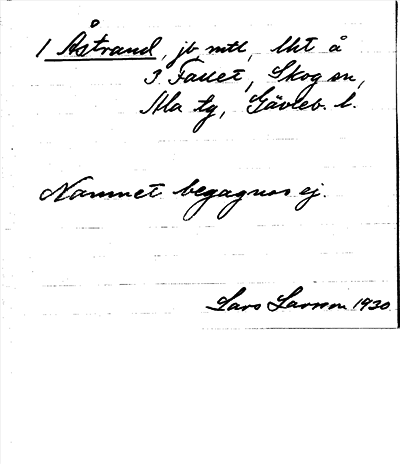 1 Åstrand, jb mtl, lht å
3 Fallet, Skog sn,
Ala tg, Gävleb. l.
Namnet begagnas ej.
Lars Larsson 1930